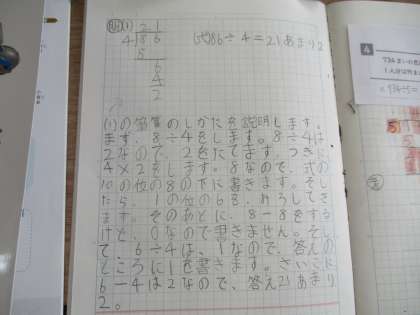 (1) 21
4)86
(式)86÷4=21あまり2
8
6
4
2
(1)の筆算のしかたを説明します。
まず、8÷4をします。8÷4は
2なので、2をたてます。つぎに
4×2をします。8なので、式の
10の位の8の下に書きます。そし
たら、1の位の6を、おろしてき
ます。そのあとに、8-8をする
けど、0なので書きません。そし
て、6÷4は、1なので、答えの
ところに1を書きます。さいごに
6-4は2なので、答え21あまり
2。
4
734
734÷5=